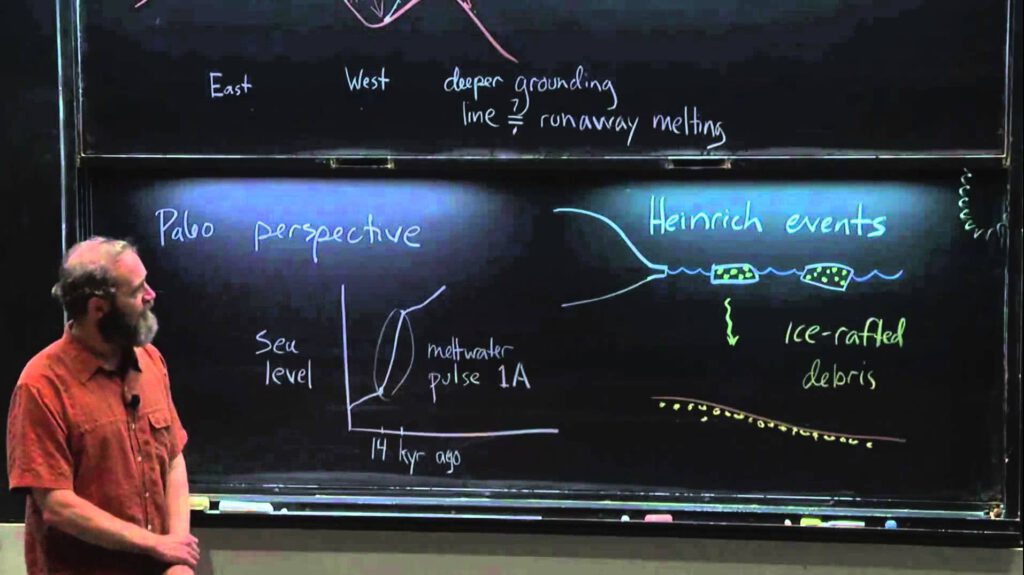 East
West
deeper grounding
line =? runaway melting
Paleo perspective
Sea
level
meltwater
pulse 1A
14 kyr ago
Heinrich events
Ice-rafted
debris